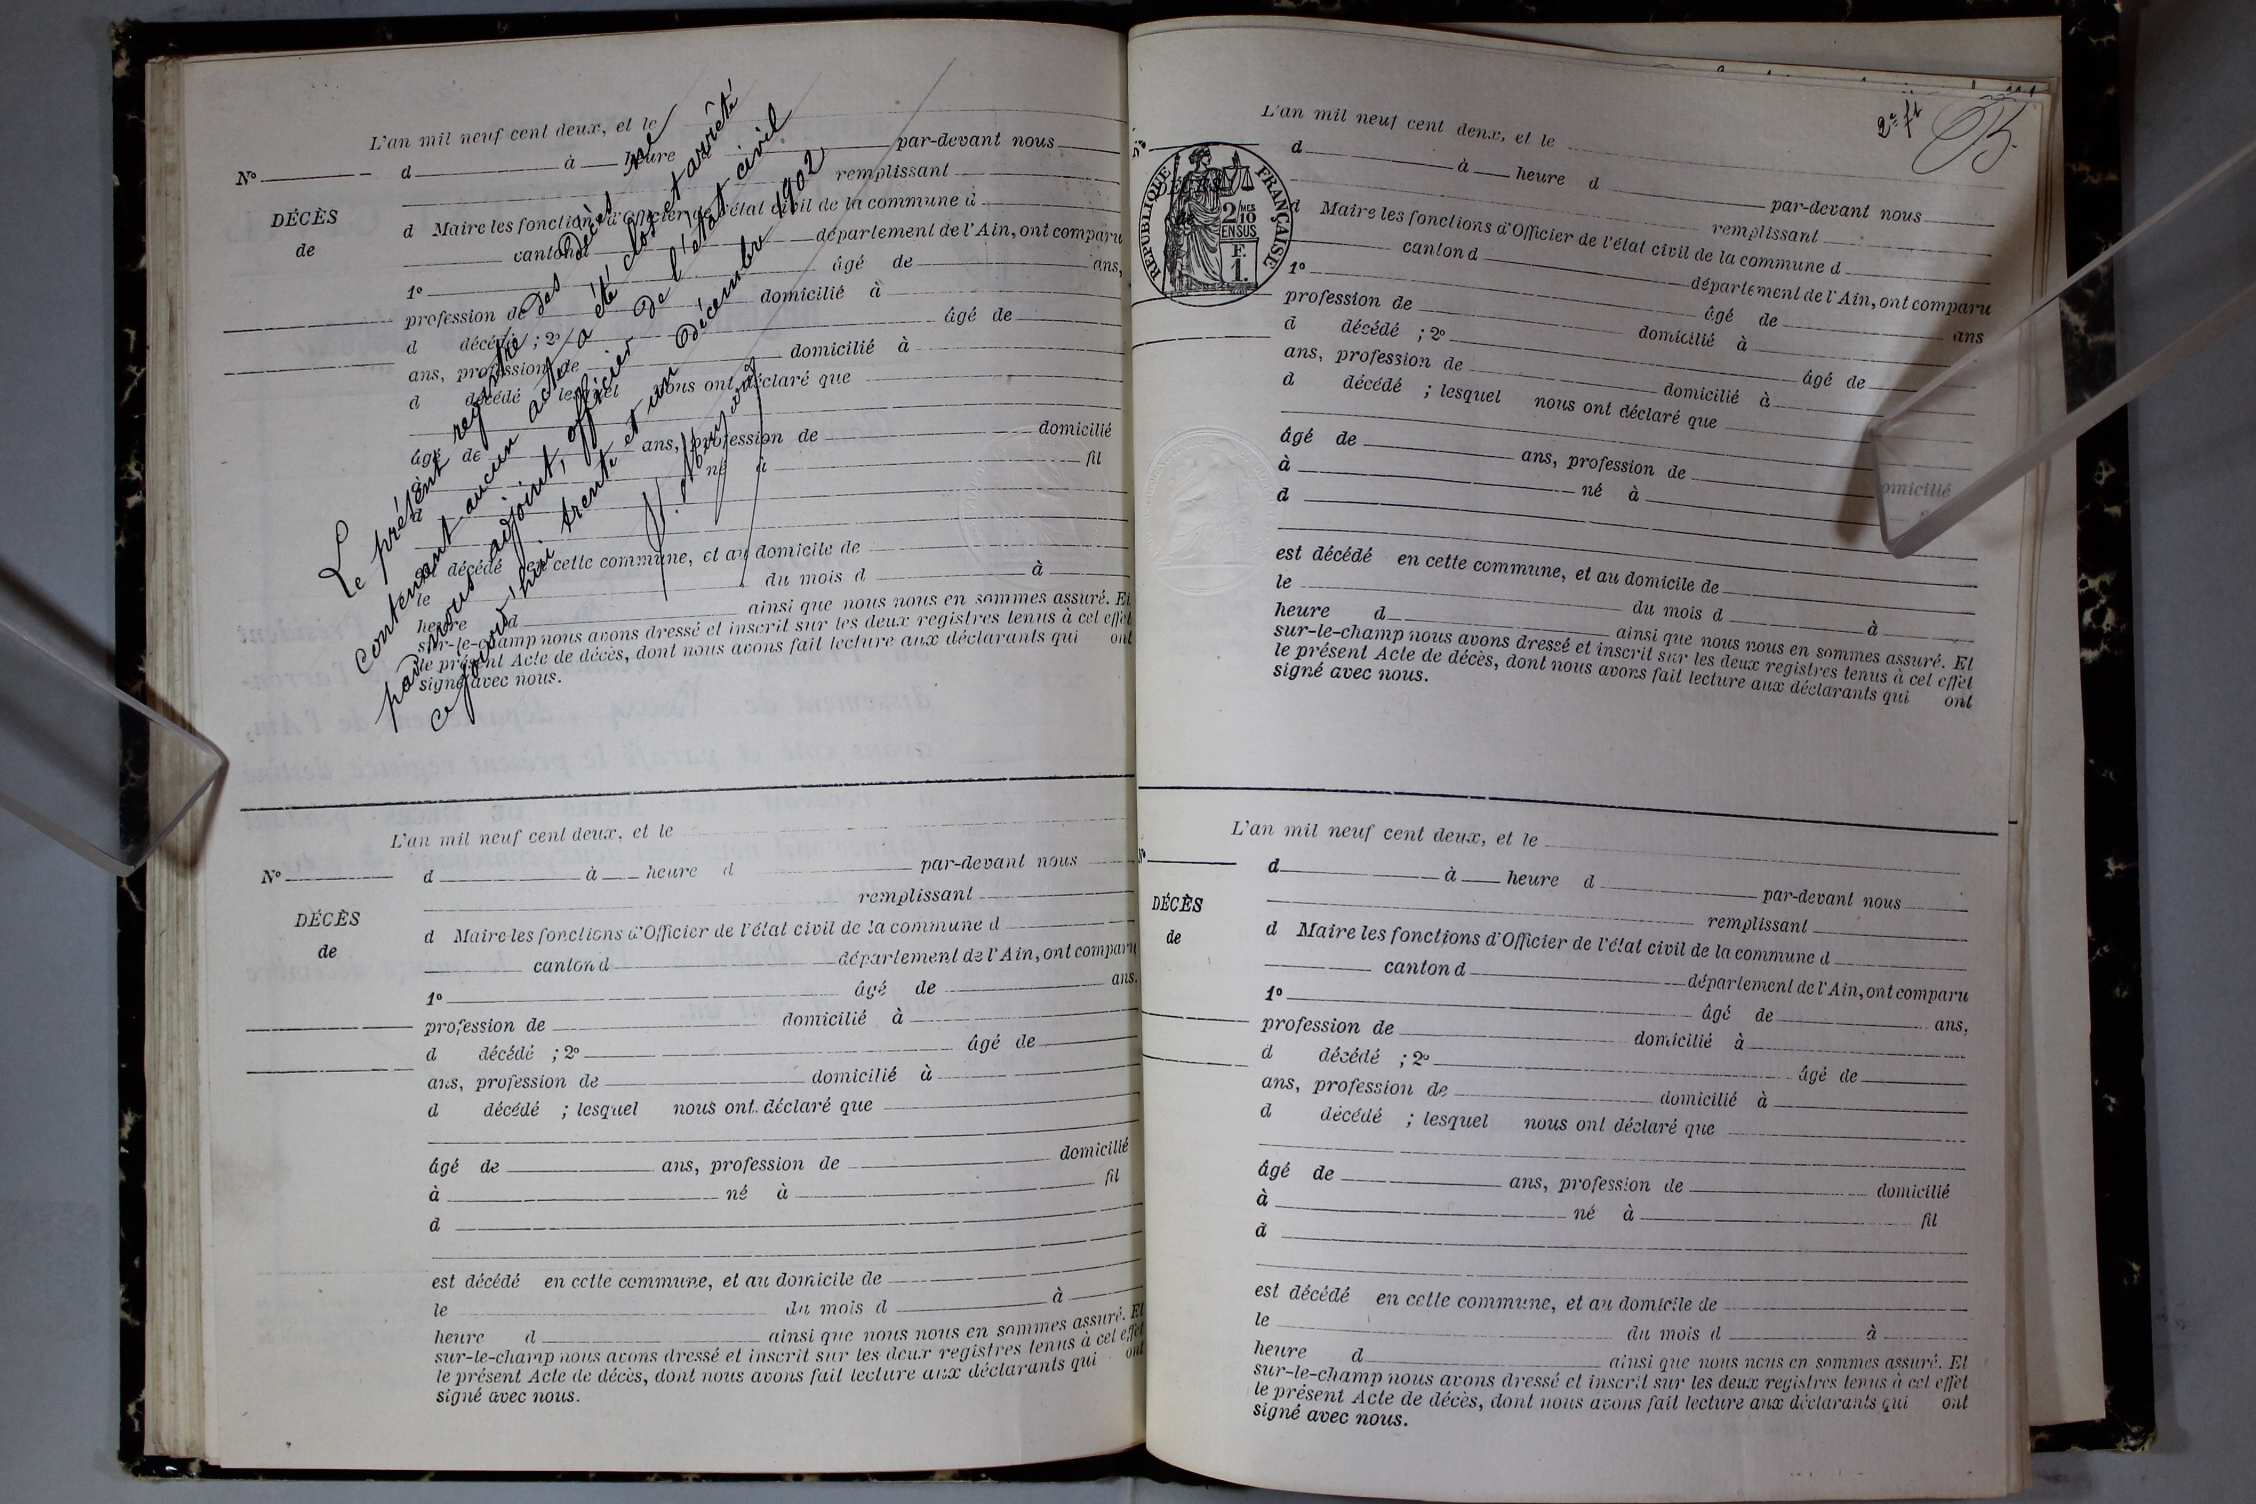 L'an mil neuf cent deux, et le
N° d à heure par-devant nous
remplissant
DÉCÈS
de
d Maire les fonctions d'Officier de l'état civil de la commune d
canton d département de l'Ain, ont comparu
1° âgé de ans,
profession de domicilié à
d décédé ; 2° âgé de
ans, profession de domicilié à
d décédé lesquel nous ont déclaré que
âgé de ans, profession de domicilié
à né à fil
d
est décédé en cette commune, et au domicile de
le du mois d à
heure d ainsi que nous nous en sommes assuré. Et
sur-le-champ nous avons dressé et inscrit sur les deux registres tenus à cet effet
le présent Acte de décès, dont nous avons fait lecture aux déclarants qui ont
signé avec nous.
Le présent registre des Décès ne
contenant aucun acte a été clos et arrêté
par nous adjoint, officier de l'état civil
ce jourd'hui trente et un Décembre 1902
L'an mil neuf cent deux, et le
N° d à heure d par-devant nous
remplissant
DÉCÈS
de
d Maire les fonctions d'Officier de l'état civil de la commune d
canton d département de l'Ain, ont comparu
1° âgé de ans.
profession de domicilié à
d décédé ; 2° âgé de
ans, profession de domicilié à
d décédé ; lesquel nous ont déclaré que
âgé de ans, profession de domicilié
à né à fil
d
est décédé en cette commune, et au domicile de
le du mois d à
heure d ainsi que nous nous en sommes assuré. Et
sur-le-champ nous avons dressé et inscrit sur les deux registres tenus à cet effet
le présent Acte de décès, dont nous avons fait lecture aux déclarants qui ont
signé avec nous.
2e ft
L'an mil neuf cent deux, et le
N° d à heure d par-devant nous
remplissant
RÉPUBLIQUE FRANÇAISE
2/10 MES
EN SUS
F.
1.
DÉCÈS
de
d Maire les fonctions d'Officier de l'état civil de la commune d
canton d département de l'Ain, ont comparu
1° âgé de ans
profession de domicilié à
d décédé ; 2° âgé de
ans, profession de domicilié à
d décédé ; lesquel nous ont déclaré que
âgé de ans, profession de omicilié
à né à
d
est décédé en cette commune, et au domicile de
le du mois d à
heure d ainsi que nous nous en sommes assuré. Et
sur-le-champ nous avons dressé et inscrit sur les deux registres tenus à cet effet
le présent Acte de décès, dont nous avons fait lecture aux déclarants qui ont
signé avec nous.
L'an mil neuf cent deux, et le
N° d à heure d par-devant nous
remplissant
DÉCÈS
de
d Maire les fonctions d'Officier de l'état civil de la commune d
canton d département de l'Ain, ont comparu
1° âgé de ans,
profession de domicilié à
d décédé ; 2° âgé de
ans, profession de domicilié à
d décédé ; lesquel nous ont déclaré que
âgé de ans, profession de domicilié
à né à fil
d
est décédé en cette commune, et au domicile de
le du mois d à
heure d ainsi que nous nous en sommes assuré. Et
sur-le-champ nous avons dressé et inscrit sur les deux registres tenus à cet effet
le présent Acte de décès, dont nous avons fait lecture aux déclarants qui ont
signé avec nous.